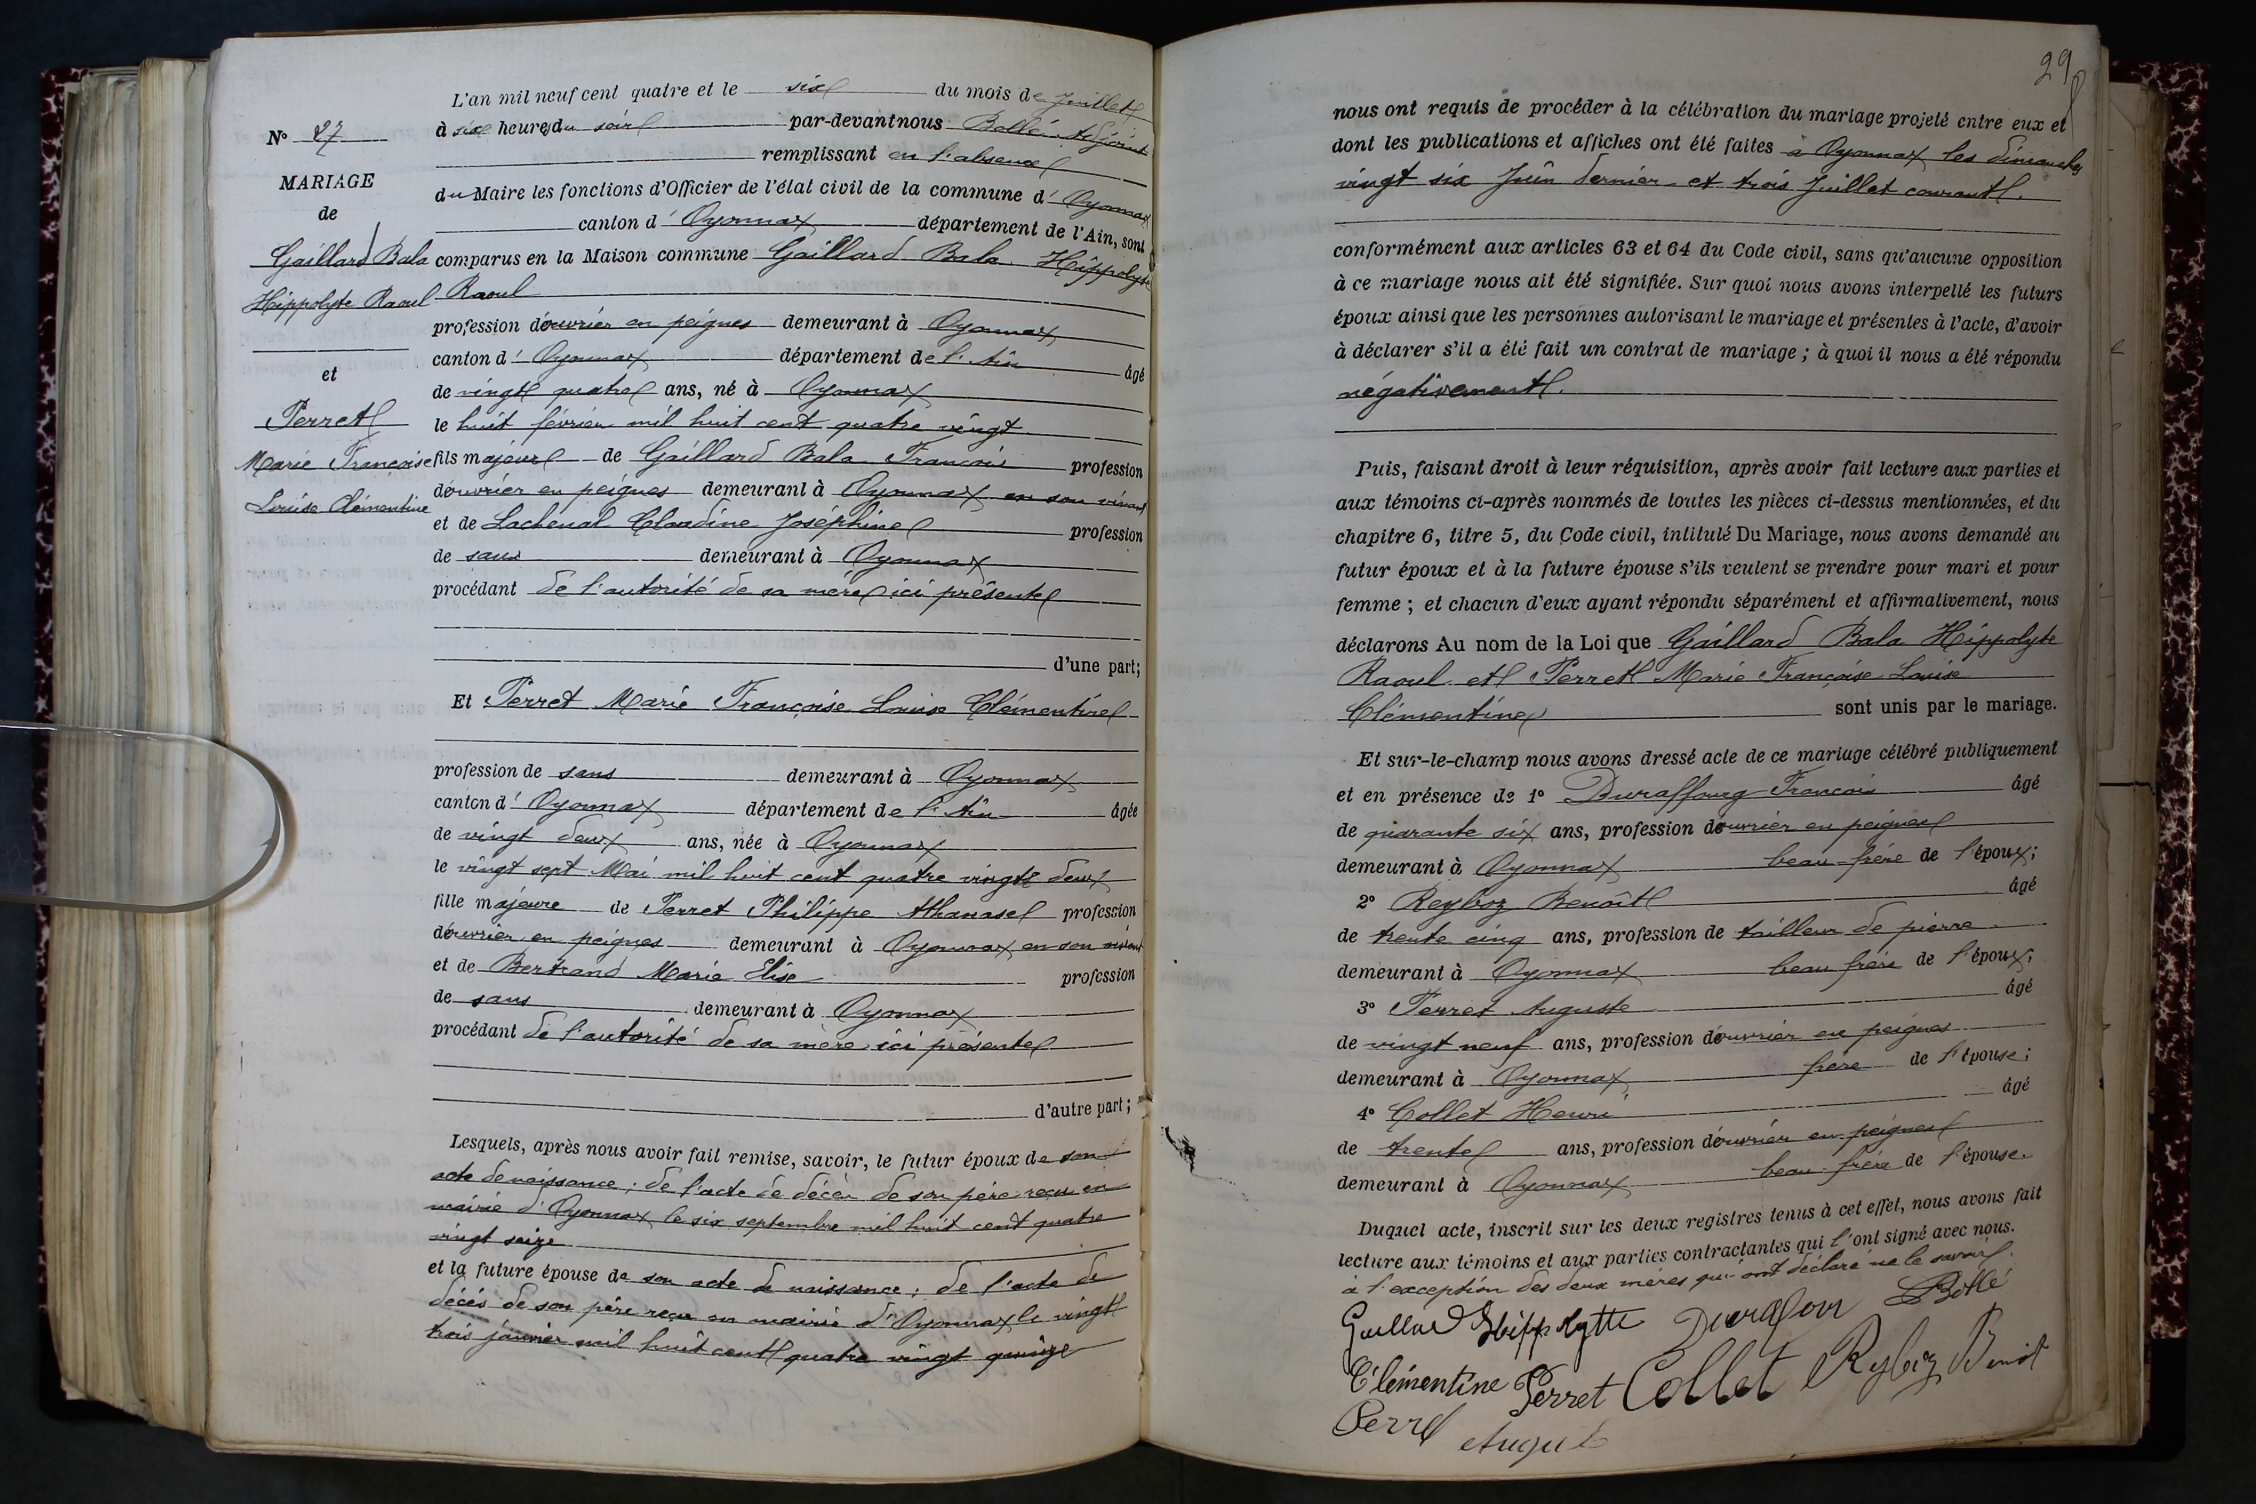 N° 27
MARIAGE
de
Gaillard Bala
Hippolyte Raoul
et
Perret
Marie Françoise
Louise Clémentine
L'an mil neuf cent quatre et le six du mois de Juillet
à six heures du soir par-devant nous Bollé adjoint
remplissant en l'absence
du Maire les fonctions d'Officier de l'état civil de la commune d'Oyonnax
canton d'Oyonnax département de l'Ain, sont
comparus en la Maison commune Gaillard Bala Hippolyte
Raoul
profession d'ouvrier en peignes demeurant à Oyonnax
canton d'Oyonnax département de l'Ain âgé
de vingt quatre ans, né à Oyonnax
le huit février mil huit cent quatre vingt
fils majeur de Gaillard Bala François profession
d'ouvrier en peignes demeurant à Oyonnax en son vivant
et de Lachenal Claudine Joséphine profession
de sans demeurant à Oyonnax
procédant de l'autorité de sa mère ici présente
d'une part;
Et Perret Marie Françoise Louise Clémentine
profession de sans demeurant à Oyonnax
canton d'Oyonnax département de l'Ain âgée
de vingt deux ans, née à Oyonnax
le vingt sept Mai mil huit cent quatre vingt deux
fille majeure de Perret Philippe Athanase profession
d'ouvrier en peignes demeurant à Oyonnax en son vivant
et de Bertrand Marie Elise profession
de sans demeurant à Oyonnax
procédant de l'autorité de sa mère ici présente
d'autre part;
Lesquels, après nous avoir fait remise, savoir, le futur époux de son
acte de naissance; de l'acte de décès de son père reçu en
mairie d'Oyonnax le six septembre mil huit cent quatre
vingt seize
et la future épouse de son acte de naissance; de l'acte de
décès de son père reçu en mairie d'Oyonnax le vingt
trois janvier mil huit cent quatre vingt quinze
29
nous ont requis de procéder à la célébration du mariage projeté entre eux et
dont les publications et affiches ont été faites à Oyonnax les dimanches
vingt six Juin dernier et trois Juillet courant.
conformément aux articles 63 et 64 du Code civil, sans qu'aucune opposition
à ce mariage nous ait été signifiée. Sur quoi nous avons interpellé les futurs
époux ainsi que les personnes autorisant le mariage et présentes à l'acte, d'avoir
à déclarer s'il a été fait un contrat de mariage; à quoi il nous a été répondu
négativement.
Puis, faisant droit à leur réquisition, après avoir fait lecture aux parties et
aux témoins ci-après nommés de toutes les pièces ci-dessus mentionnées, et du
chapitre 6, titre 5, du Code civil, intitulé Du Mariage, nous avons demandé au
futur époux et à la future épouse s'ils veulent se prendre pour mari et pour
femme; et chacun d'eux ayant répondu séparément et affirmativement, nous
déclarons Au nom de la Loi que Gaillard Bala Hippolyte
Raoul et Perret Marie Françoise Louise
Clémentine sont unis par le mariage.
Et sur-le-champ nous avons dressé acte de ce mariage célébré publiquement
et en présence de 1° Duraffourg François âgé
de quarante six ans, profession d'ouvrier en peignes
demeurant à Oyonnax beau-frère de l'époux;
2° Reyboz Benoît âgé
de trente cinq ans, profession de tailleur de pierre
demeurant à Oyonnax beau frère de l'époux;
3° Perret Auguste âgé
de vingt neuf ans, profession d'ouvrier en peignes
demeurant à Oyonnax frère de l'épouse;
4° Collet Henri âgé
de trente ans, profession d'ouvrier en peignes
demeurant à Oyonnax beau-frère de l'épouse.
Duquel acte, inscrit sur les deux registres tenus à cet effet, nous avons fait
lecture aux témoins et aux parties contractantes qui l'ont signé avec nous.
à l'exception des deux mères qui ont déclaré ne le savoir.
Gaillard Hippolytte Bollé
Clémentine Perret Collet Reyboz Benoit
Perret